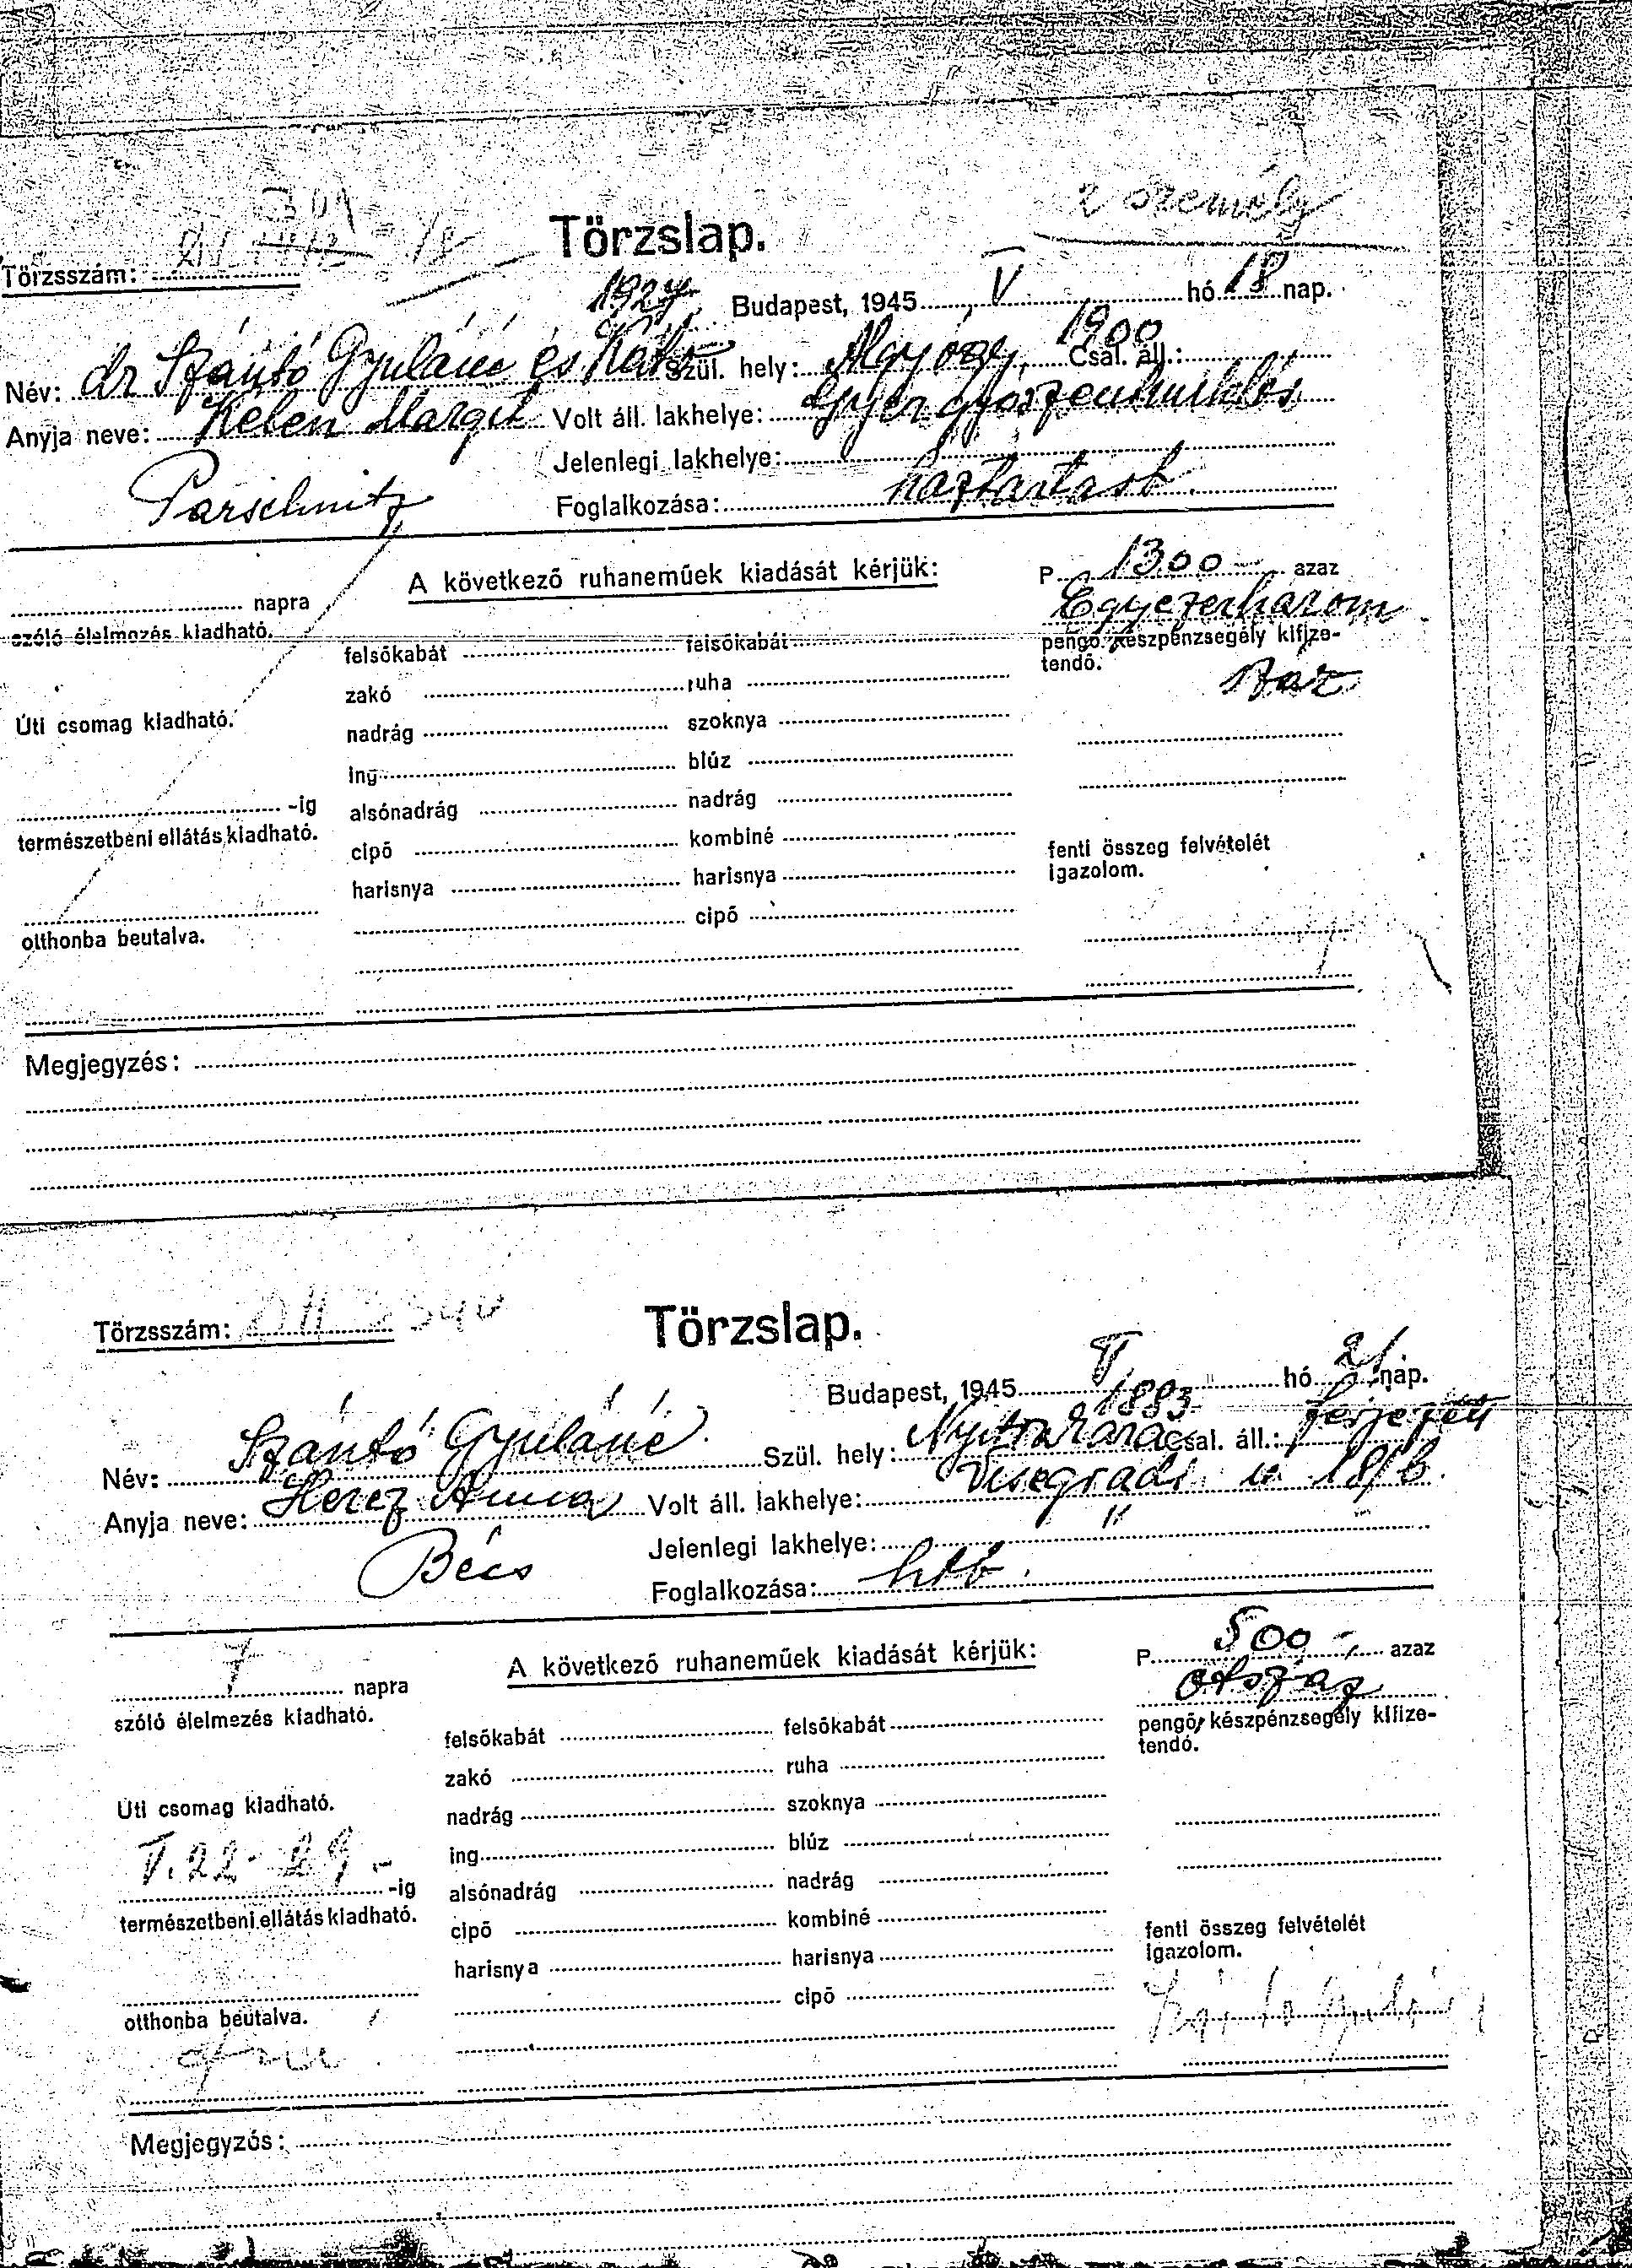 2 személy
Törzslap.
Törzsszám:
1927. Budapest, 1945 V hó 18 nap.
1900
Név: dr Szántó Gyuláné és Kató Szül. hely: Algyógy, Csal. áll.:
Anyja neve: Kelen Margit Volt áll. lakhelye: Gyergyószentmiklós
Jelenlegi lakhelye:
Parschnitz Foglalkozása: háztartásb.
A következő ruhaneműek kiadását kérjük: P 1300 azaz
napra Egyezerhárom
szóló élelmezés kiadható. felsőkabát felsőkabát pengő készpénzsegély kifize-
tendő. száz
zakó ruha
Úti csomag kiadható. nadrág szoknya
ing blúz
-ig alsónadrág nadrág
természetbeni ellátás kiadható. cipő kombiné fenti összeg felvételét
igazolom.
harisnya harisnya
cipő
otthonba beutalva.
Megjegyzés:
Törzslap.
Törzsszám:
Budapest, 1945 V hó 21. nap.
1883
Név: Szántó Gyuláné Szül. hely: Csal. áll.: férjezett
Anyja neve: Hercz Anna Volt áll. lakhelye: Visegrádi u 18/b.
Bécs Jelenlegi lakhelye: "
Foglalkozása: htb.
A következő ruhaneműek kiadását kérjük: P 500 -, azaz
7 napra ötszáz
szóló élelmezés kiadható. felsőkabát felsőkabát pengő készpénzsegély kifize-
tendő.
zakó ruha
Úti csomag kiadható. nadrág szoknya
V. 22 - 29 - ing blúz
-ig alsónadrág nadrág
természetbeni ellátás kiadható. cipő kombiné fenti összeg felvételét
igazolom.
harisnya harisnya
cipő
otthonba beutalva. Szántó Gyuláné
Megjegyzés: